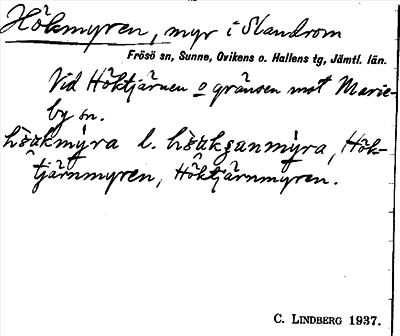 Hökmyren, myr i Slandrom
Frösö sn, Sunne, Ovikens o. Hallens tg, Jämtl. län.
Vid Höktjärnen o gränsen mot Marie-
by sn.
l. Hök-
tjärnmyren, Höktjärnmyren.
C. LINDBERG 1937.